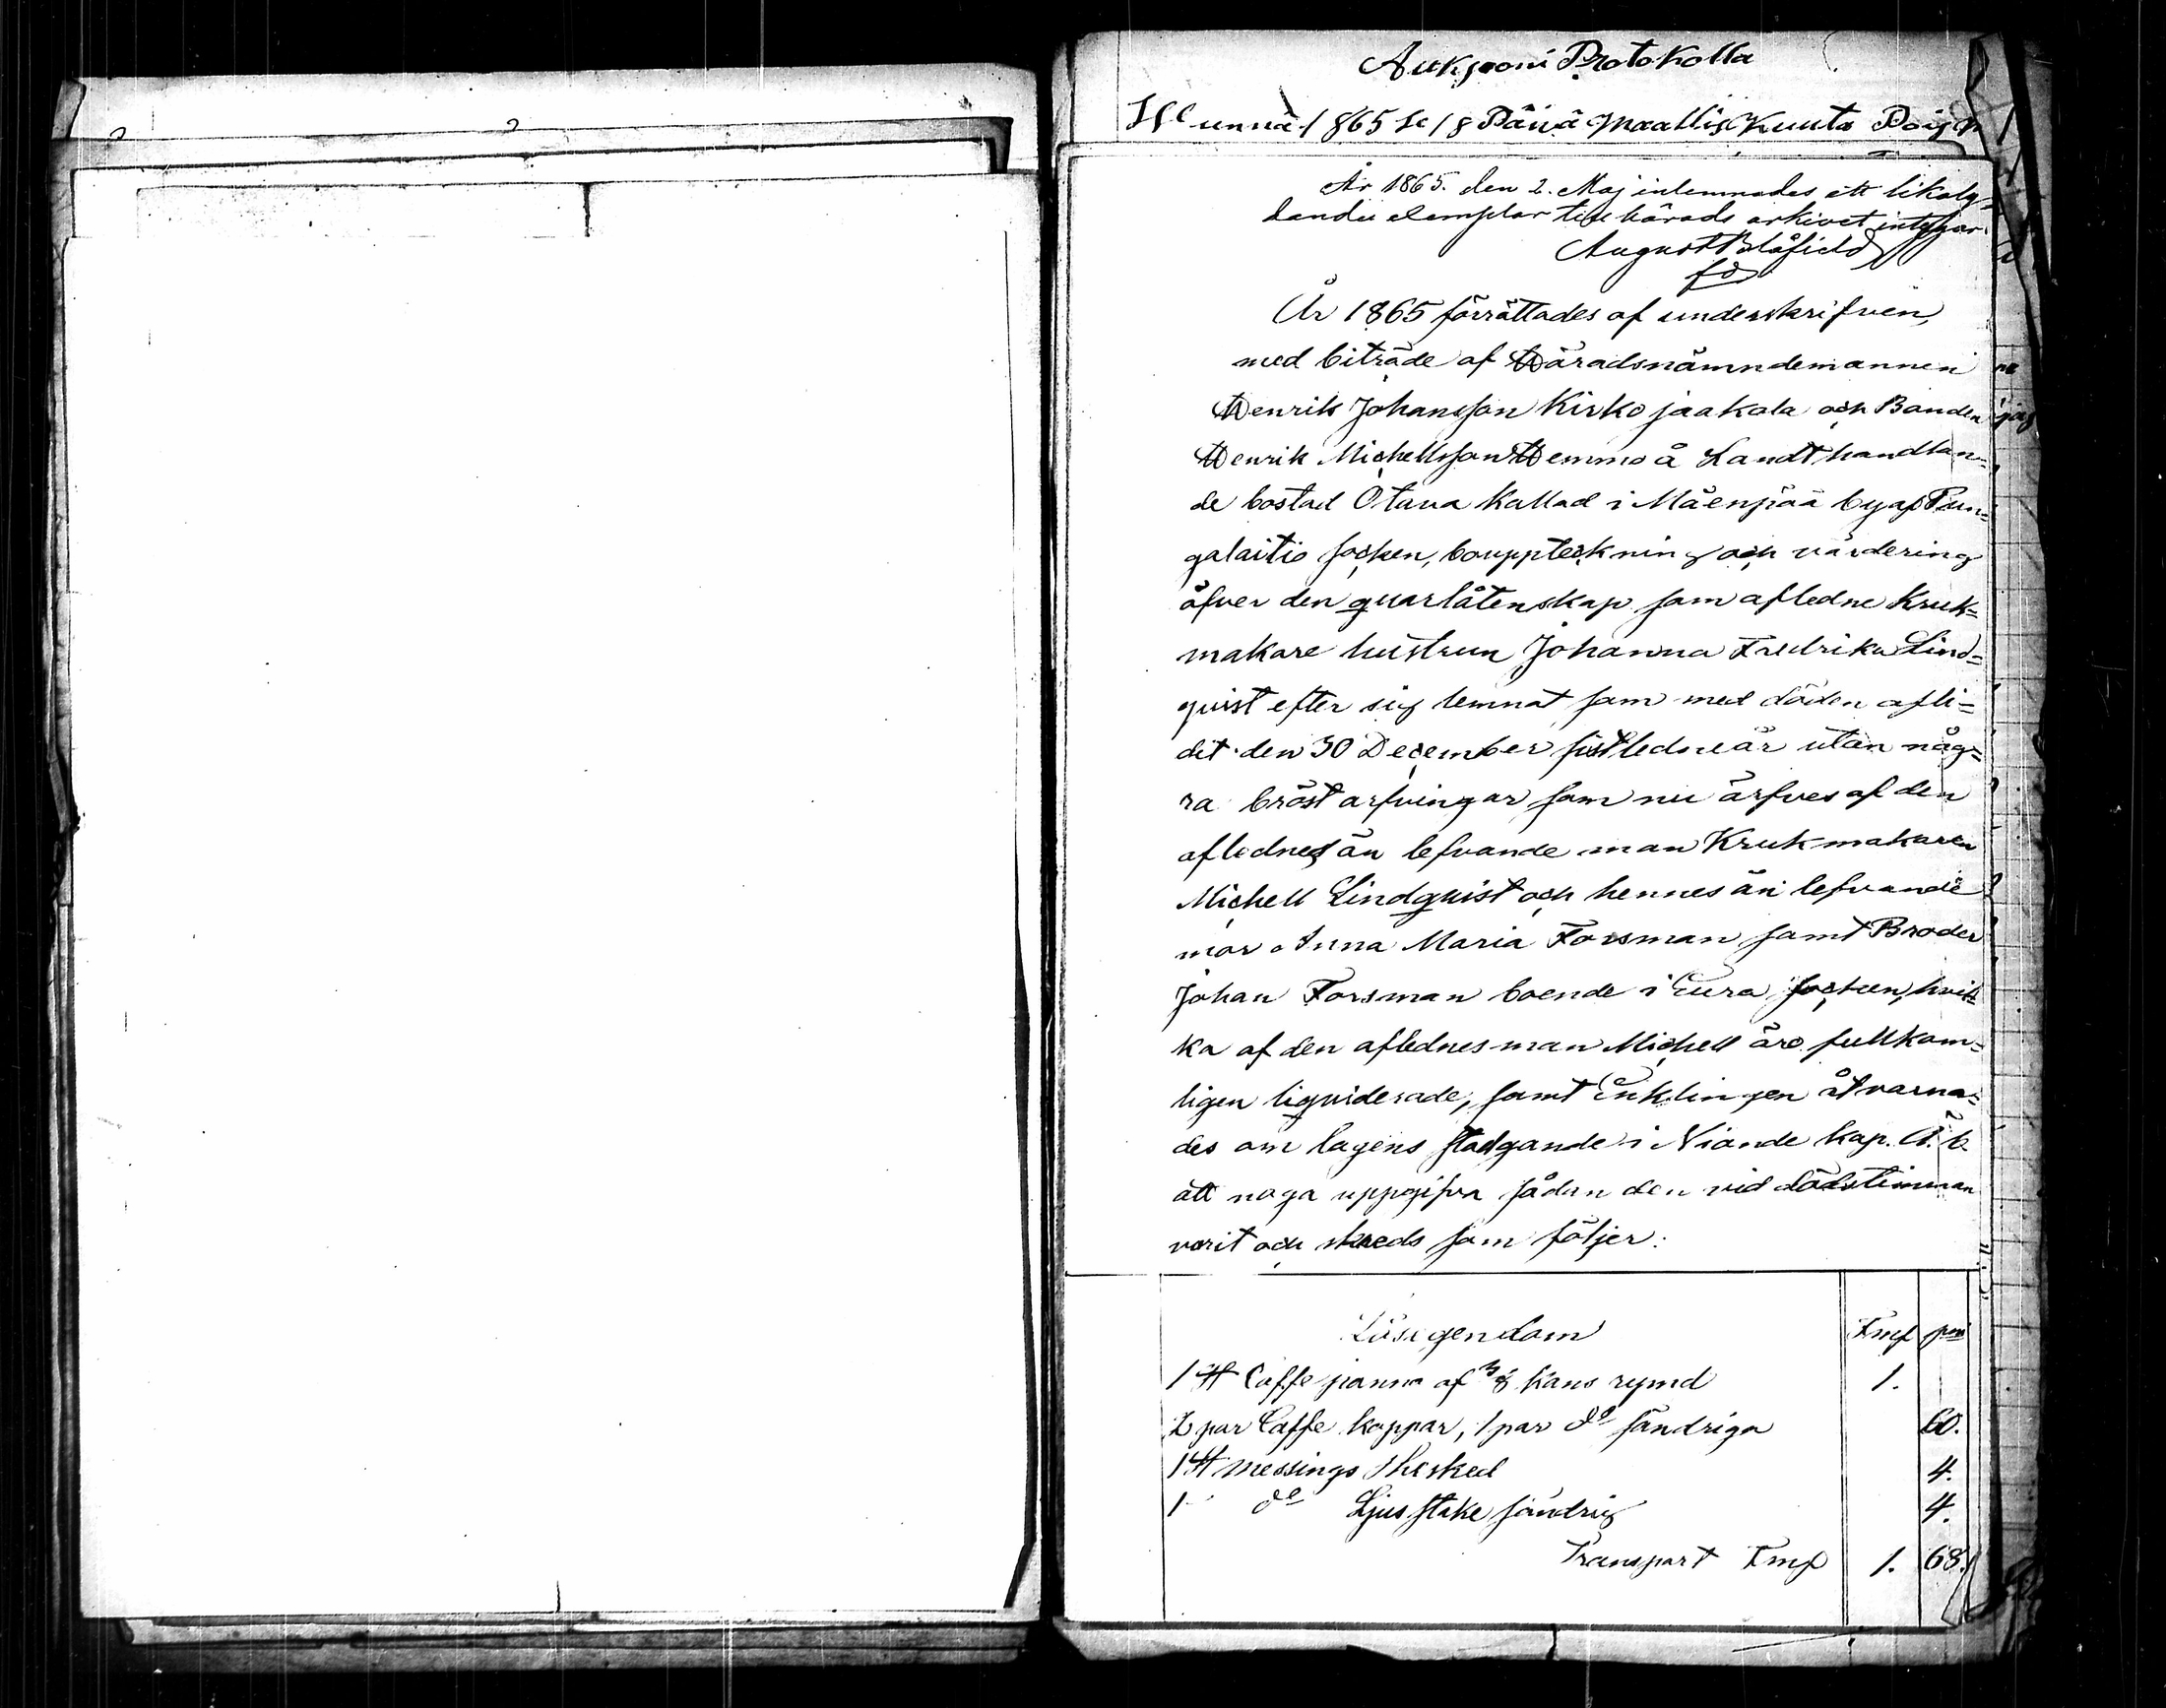 Aukjooni Protokolla
Wuonna 1865 Se 18 Päivä Maallis Kuuta
År 1865. den 2. Maj inlemnades ett likaly-
dande exemplar till härads arkivet, intygar.
August Blåfield
År 1865 förrättades af underskrifven,
med biträde af Häradsnämndemannen
Henrik Johansson Kirkojaakola och Bonden
Henrik Michellsson Hemmo å Landthandlan=
de bostad Otava kallad i Mäenpää by af Pun=
galaitio socken, bouppteckning och värdering
öfver den quarlåtenskap som aflidne Kruk=
makare hustrun Johanna Fredrika Lind=
qvist efter sig lemnat som med döden afli=
dit den 30 December sistledne år utan någ=
ra bröst arfvingar som nu ärfves af den
aflednes än lefvande man Krukmakaren
Michell Lindqvist och hennes än lefvande
mor Anna Maria Forsman samt Broder
Johan Forsman boende i Eura socken, hvil
ka af den aflednes man Michell äro fullkom=
ligen liqviderade, samt Enklingen åtvarna=
des om lagens stadgande i Niande kap. Ä. b.
att noga uppgifva sådan den vid dödstimman
varit och skreds som följer:
Lösegendom Fmk pni
1 st Caffe panna af 3/8 kans rymd 1.
2 par Caffe koppar, 1 par do söndriga 60.
1 st Messings Thesked 4.
1 do Ljus stake söndrig 4.
Transport Fmk 1. 68.